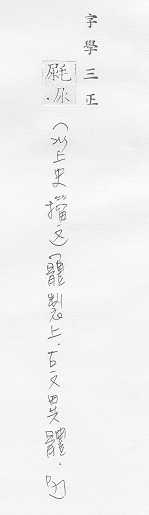 字學三正
(以上史描文)(體製上.古文異體.